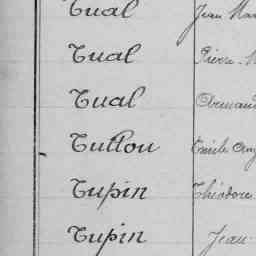 Tual Jean Mar
Tual Pierre-M
Tual Armand
Tullou Emile Aug
Tupin Théodore
Tupin Jean-